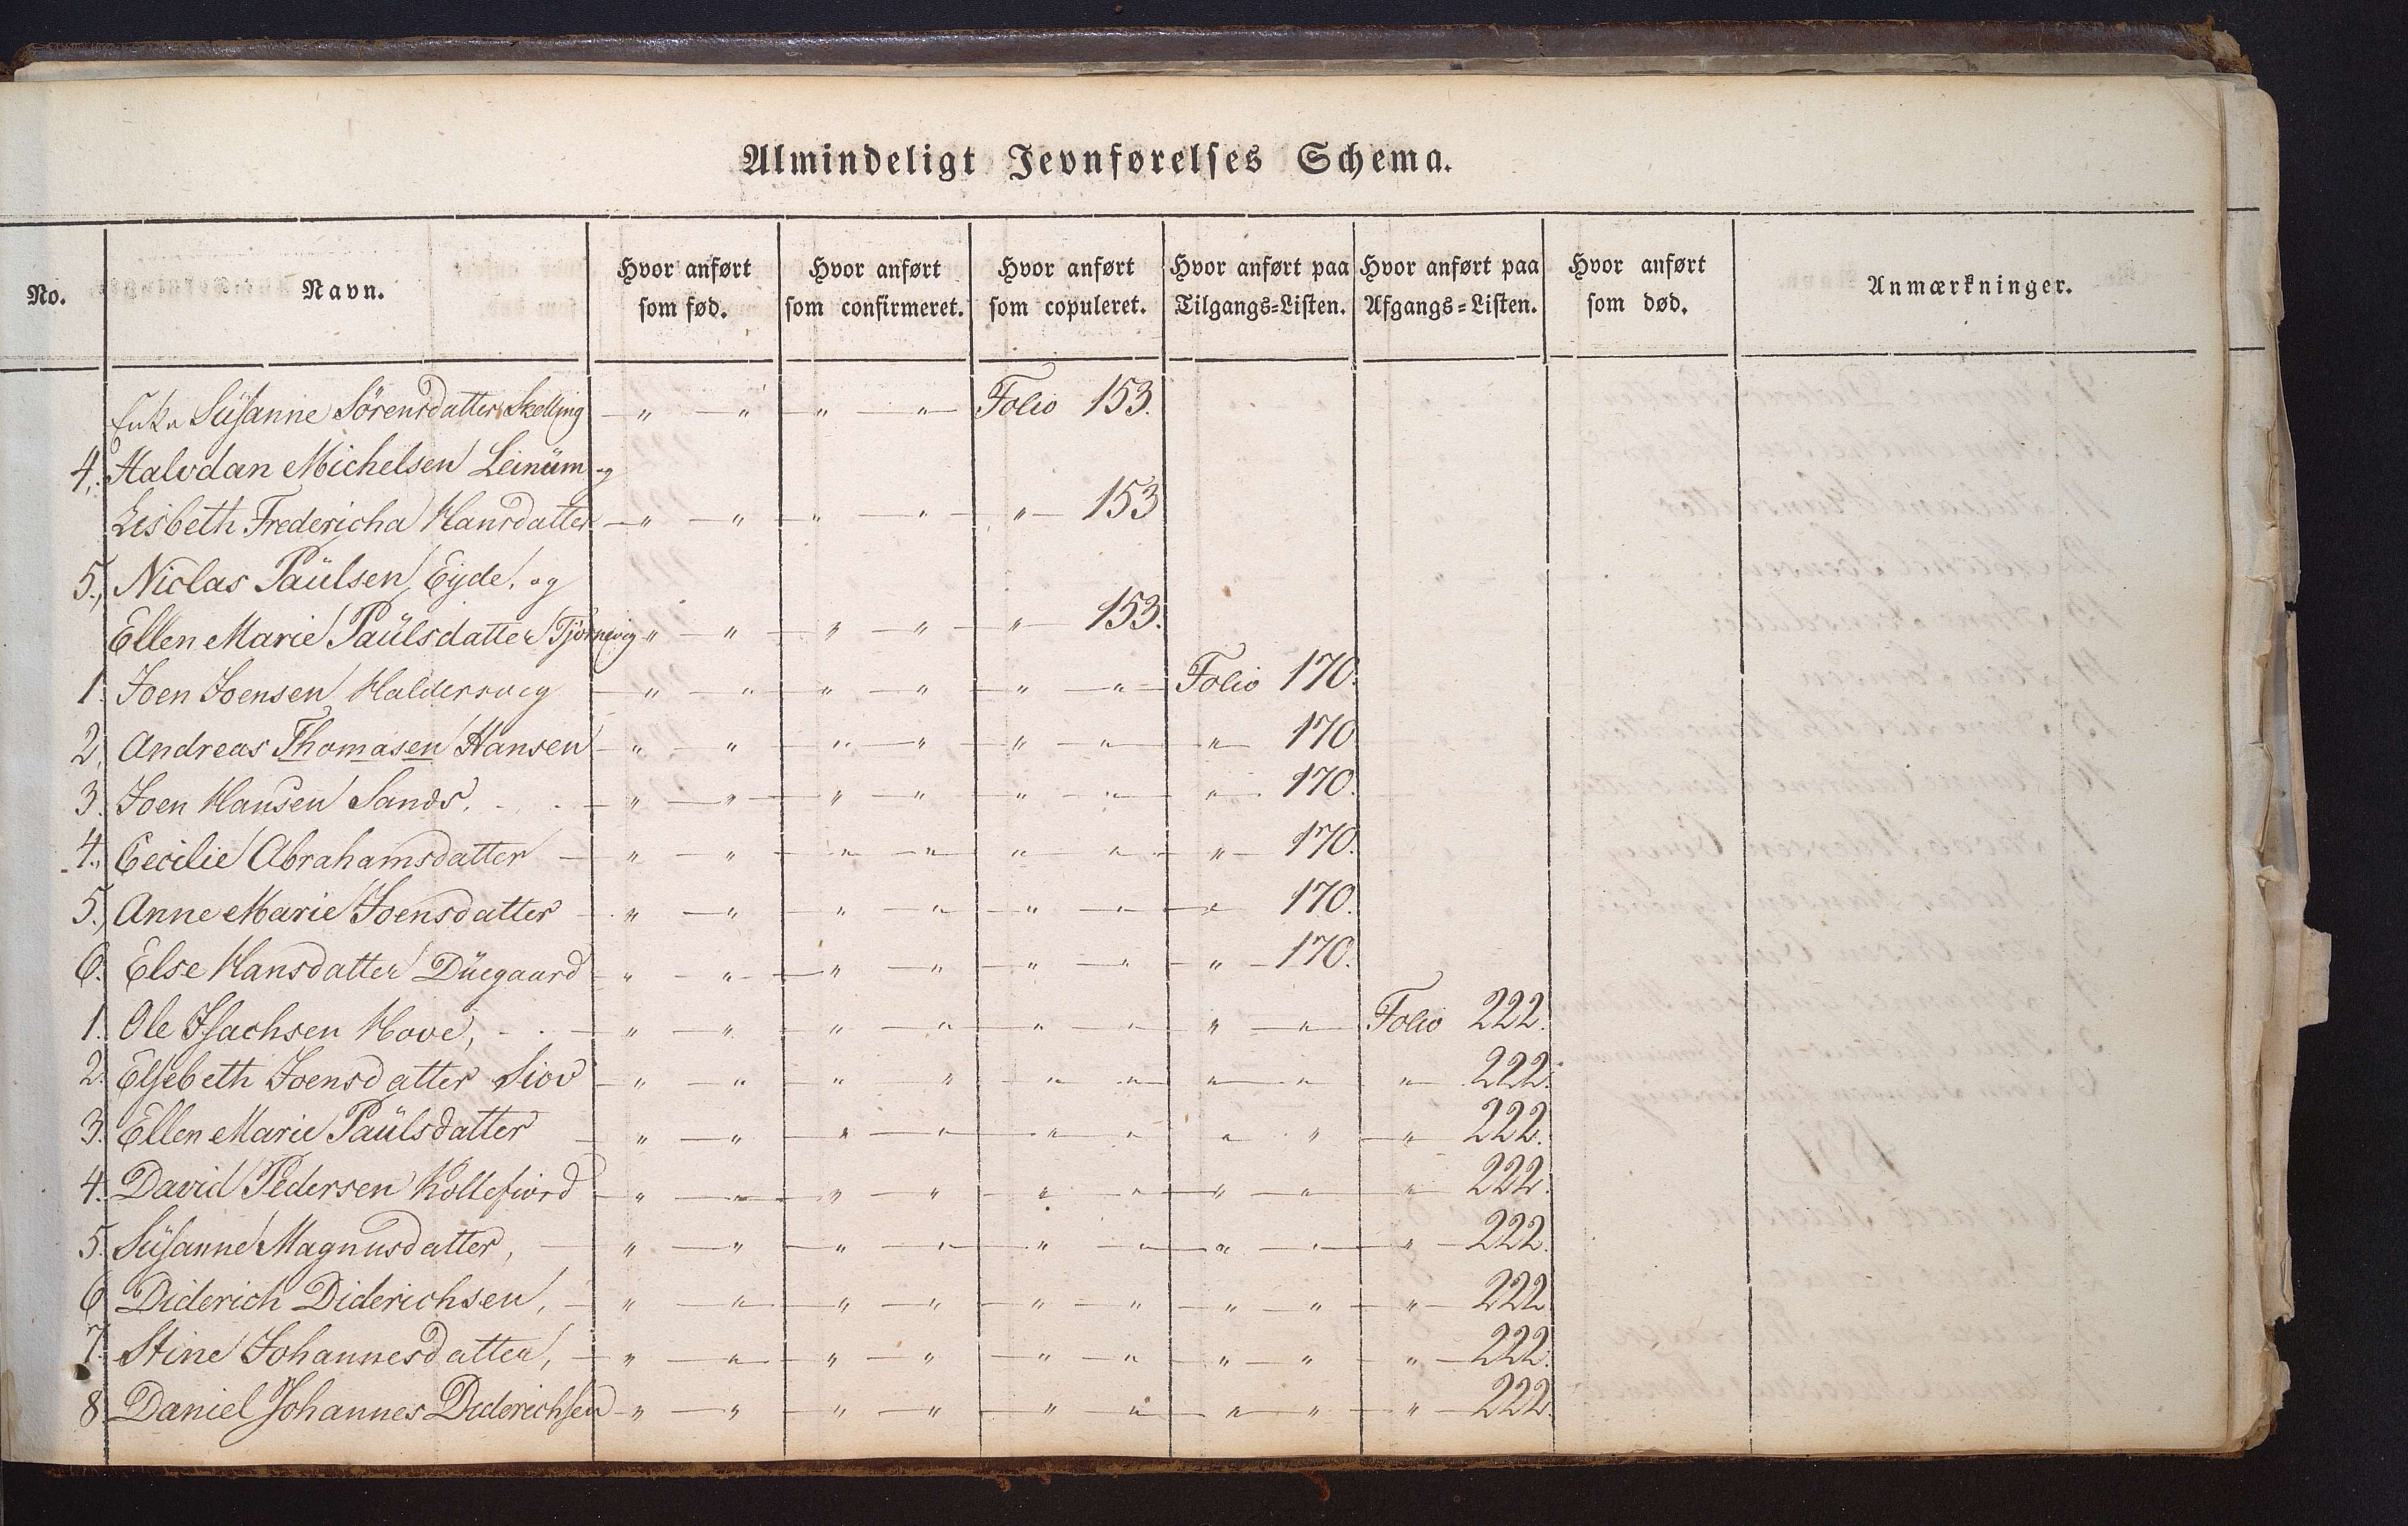 Almindeligt Jevnførelses Schema.
No. Navn. Hvor anført som fød. Hvor anført som confirmeret. Hvor anført som copuleret. Hvor anført paa Tilgangs=Listen. Hvor anført paa Afgangs=Listen. Hvor anført som død. Anmærkninger.
Enke Süsanne Sörensdatter Skelling — " — " — " — " — Folio 153.
4. Halvdan Michelsen Leinüm og
Lisbeth Fredericha Hansdatter — " — " — " — " — " — 153
5. Niclas Paülsen Eyde, og
Ellen Marie Paülsdatter Tjörnevig " — " — " — " — " — 153.
1. Joen Joensen Haldersvig — " — " — " — " — " — " — Folio 170.
2. Andreas Thomasen Hansen — " — " — " — " — " — " — " — 170
3. Joen Hansen Sands. — " — " — " — " — " — " — " — 170.
4. Cecilie Abrahamsdatter — " — " — " — " — " — " — " — 170.
5. Anne Marie Joensdatter — " — " — " — " — " — " — " — 170.
6. Else Hansdatter Düegaard — " — " — " — " — " — " — " — 170.
1. Ole Isachsen Hove, — " — " — " — " — " — " — " — " — Folio 222.
2. Elsebeth Joensdatter Siov — " — " — " — " — " — " — " — " — " — 222.
3. Ellen Marie Paülsdatter — " — " — " — " — " — " — " — " — " — 222.
4. David Pedersen Kollefiord — " — " — " — " — " — " — " — " — " — 222.
5. Süsanne Magnusdatter, — " — " — " — " — " — " — " — " — " — 222.
6. Diderich Diderichsen, — " — " — " — " — " — " — " — " — " — 222
7. Stine Johannesdatter, — " — " — " — " — " — " — " — " — " — 222.
8. Daniel Johannes Diderichsen — " — " — " — " — " — " — " — " — " — 222.